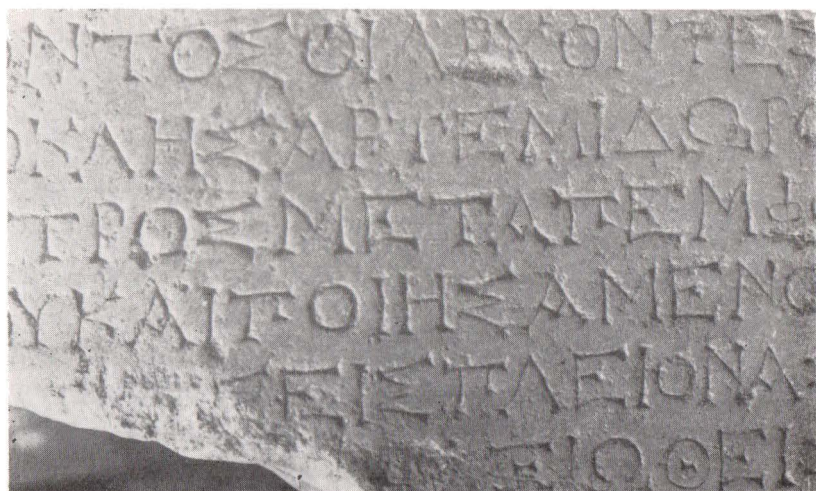 ΟΝΤΟΣΟΙΑΡΧΟΝΤΕΣ
ΟΚΛΗΣΑΡΤΕΜΙΔΩΡΟ
ΤΡΩΣΜΕΤΑΠΕΜΦ
ΟΥΚΑΙΠΟΙΗΣΑΜΕΝΟ
ΕΙΣΠΛΕΙΟΝΑ
ΞΙΩΘΕΙ